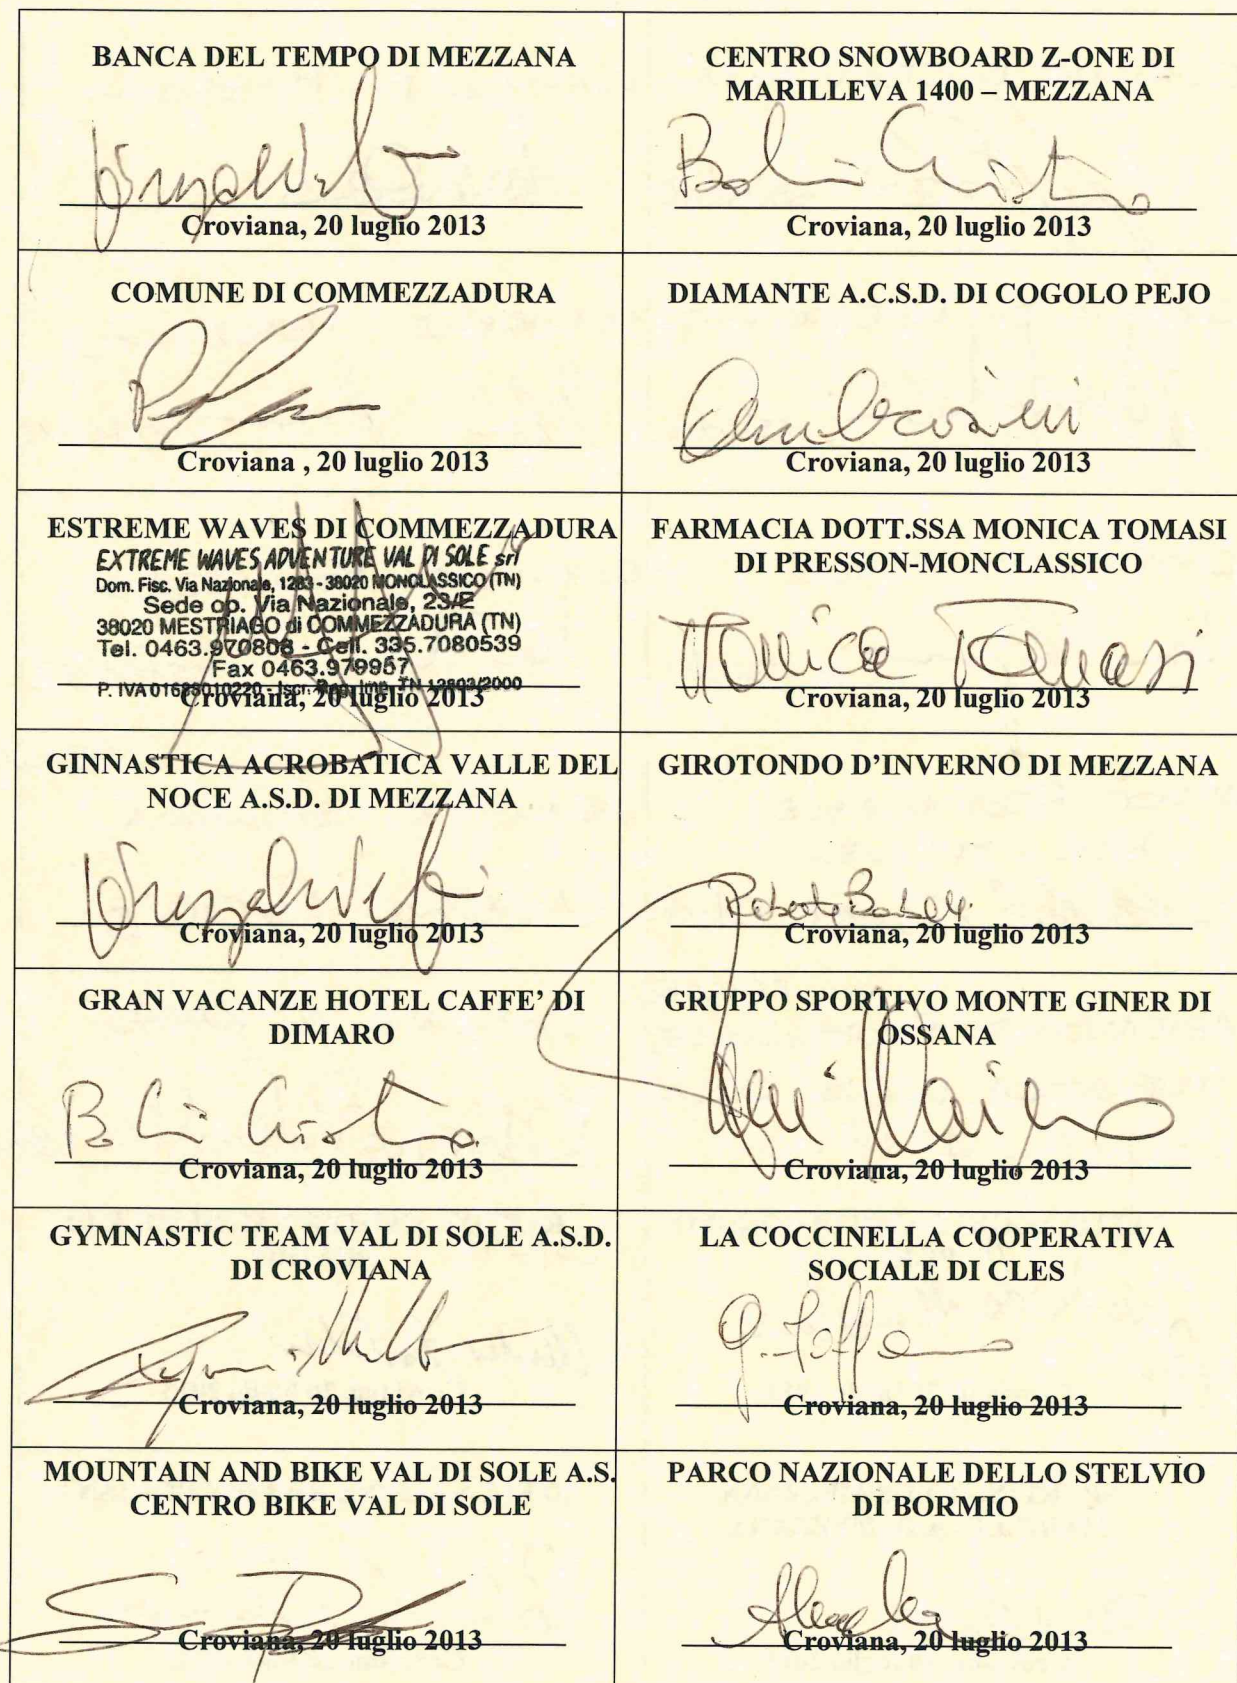 BANCA DEL TEMPO DI MEZZANA
Croviana, 20 luglio 2013
CENTRO SNOWBOARD Z-ONE DI
MARILLEVA 1400 – MEZZANA
Croviana, 20 luglio 2013
COMUNE DI COMMEZZADURA
Croviana , 20 luglio 2013
DIAMANTE A.C.S.D. DI COGOLO PEJO
Croviana, 20 luglio 2013
ESTREME WAVES DI COMMEZZADURA
EXTREME WAVES ADVENTURE VAL DI SOLE srl
Dom. Fisc. Via Nazionale, 1283 - 38020 MONCLASSICO (TN)
Sede op. Via Nazionale, 23/E
38020 MESTRIAGO di COMMEZZADURA (TN)
Tel. 0463.970808 - Cell. 335.7080539
Fax 0463.979957
P. IVA
Croviana, 20 luglio 2013
FARMACIA DOTT.SSA MONICA TOMASI
DI PRESSON-MONCLASSICO
Monica Tomasi
Croviana, 20 luglio 2013
GINNASTICA ACROBATICA VALLE DEL
NOCE A.S.D. DI MEZZANA
Croviana, 20 luglio 2013
GIROTONDO D'INVERNO DI MEZZANA
Croviana, 20 luglio 2013
GRAN VACANZE HOTEL CAFFE' DI
DIMARO
Croviana, 20 luglio 2013
GRUPPO SPORTIVO MONTE GINER DI
OSSANA
Croviana, 20 luglio 2013
GYMNASTIC TEAM VAL DI SOLE A.S.D.
DI CROVIANA
Croviana, 20 luglio 2013
LA COCCINELLA COOPERATIVA
SOCIALE DI CLES
Croviana, 20 luglio 2013
MOUNTAIN AND BIKE VAL DI SOLE A.S.
CENTRO BIKE VAL DI SOLE
Croviana, 20 luglio 2013
PARCO NAZIONALE DELLO STELVIO
DI BORMIO
Croviana, 20 luglio 2013